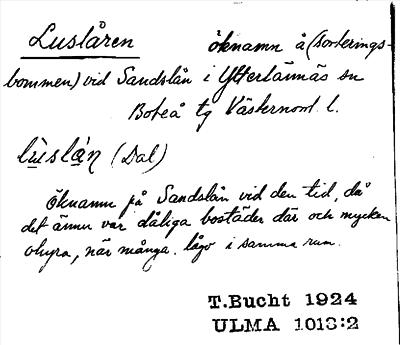 Luslåren öknamn å (sorterings-
bommen) vid Sandslån i Ytterlännäs sn
Boteå tg Västernorrl. l.
lùslą́n (Dal)
öknamn på Sandslån vid den tid, då
det ännu var dåliga bostäder där och mycken
ohyra, när många lågo i samma rum.
T.Bucht 1924
ULMA 1018:2